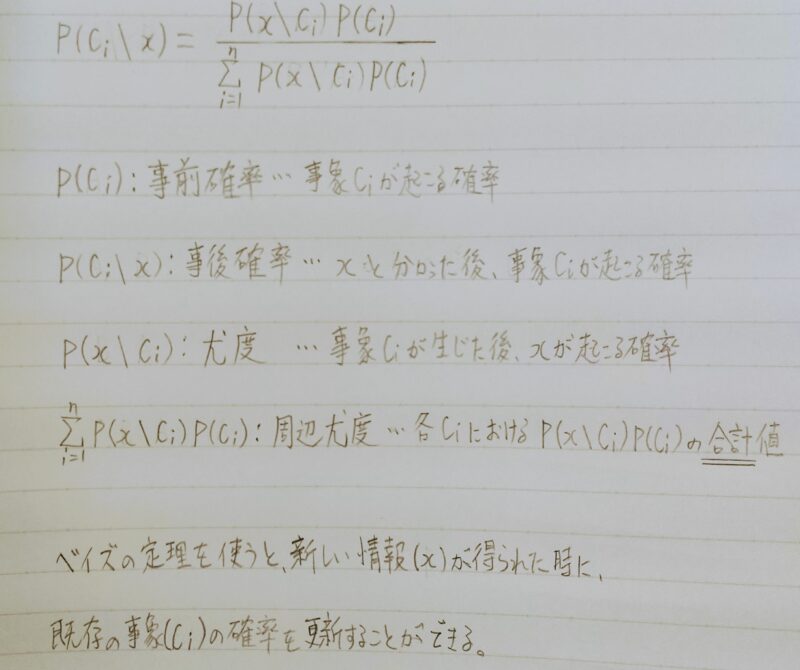 P(Ci\x) = P(x\Ci)P(Ci) / Σ_{i=1}^{n} P(x\Ci)P(Ci)
P(Ci): 事前確率… 事象Ciが起こる確率
P(Ci\x): 事後確率… xと分かった後、事象Ciが起こる確率
P(x\Ci): 尤度 … 事象Ciが生じた後、xが起こる確率
Σ_{i=1}^{n} P(x\Ci)P(Ci): 周辺尤度… 各CiにおけるP(x\Ci)P(Ci)の合計値
ベイズの定理を使うと、新しい情報(x)が得られた時に、
既存の事象(Ci)の確率を更新することができる。